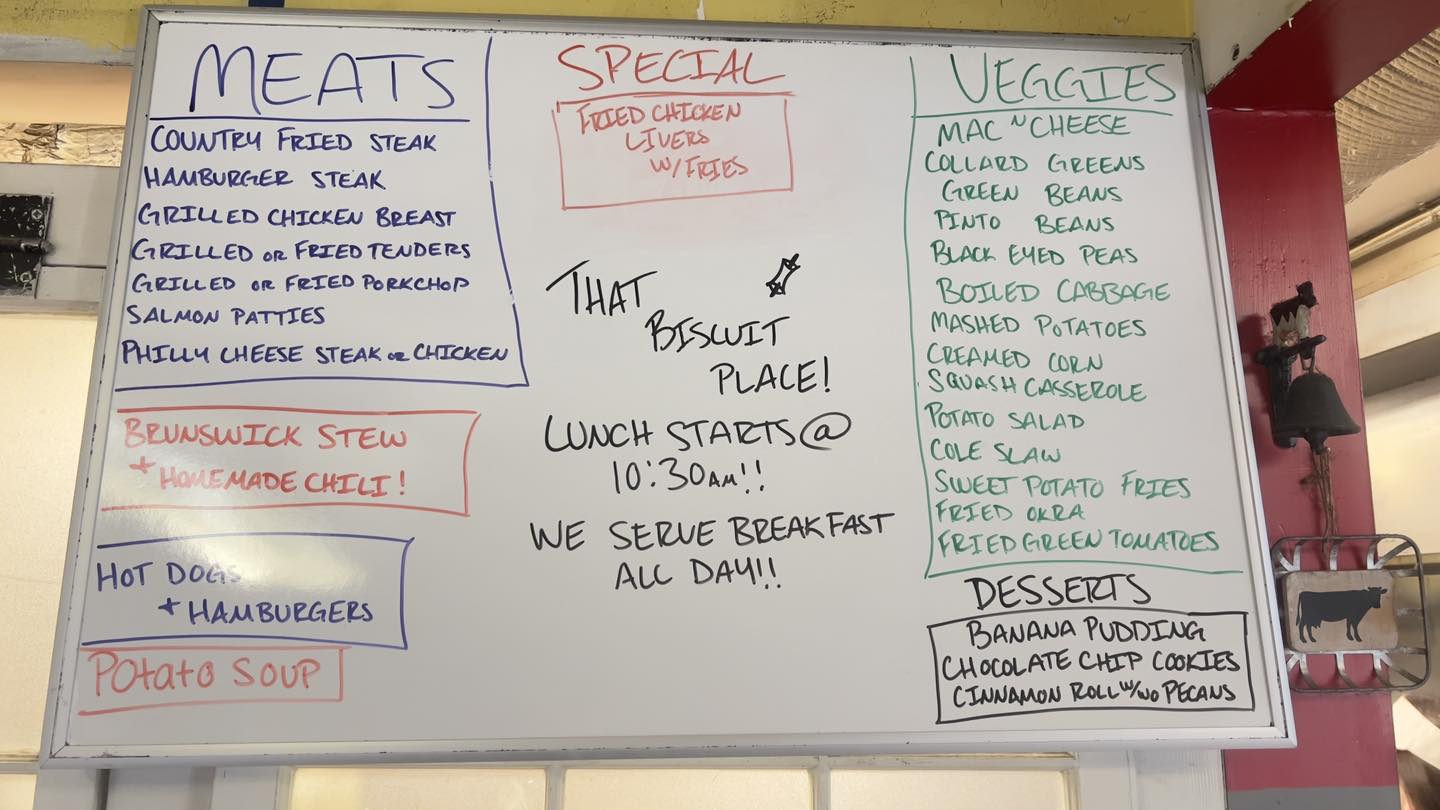 MEATS
COUNTRY FRIED STEAK
HAMBURGER STEAK
GRILLED CHICKEN BREAST
GRILLED OR FRIED TENDERS
GRILLED OR FRIED PORKCHOP
SALMON PATTIES
PHILLY CHEESE STEAK OR CHICKEN
BRUNSWICK STEW
+ HOMEMADE CHILI!
HOT DOGS
+ HAMBURGERS
POtatO SOUP
SPECIAL
FRIED CHICKEN
LIVERS
W/FRIES
THAT
BISCUIT
PLACE!
LUNCH STARTS @
10:30AM!!
WE SERVE BREAKFAST
ALL DAY!!
VEGGIES
MAC N CHEESE
COLLARD GREENS
GREEN BEANS
PINTO BEANS
BLACK EYED PEAS
BOILED CABBAGE
MASHED POTATOES
CREAMED CORN
SQUASH CASSEROLE
POTATO SALAD
COLE SLAW
SWEET POTATO FRIES
FRIED OKRA
FRIED GREEN TOMATOES
DESSERTS
BANANA PUDDING
CHOCOLATE CHIP COOKIES
CINNAMON ROLL W/WO PECANS